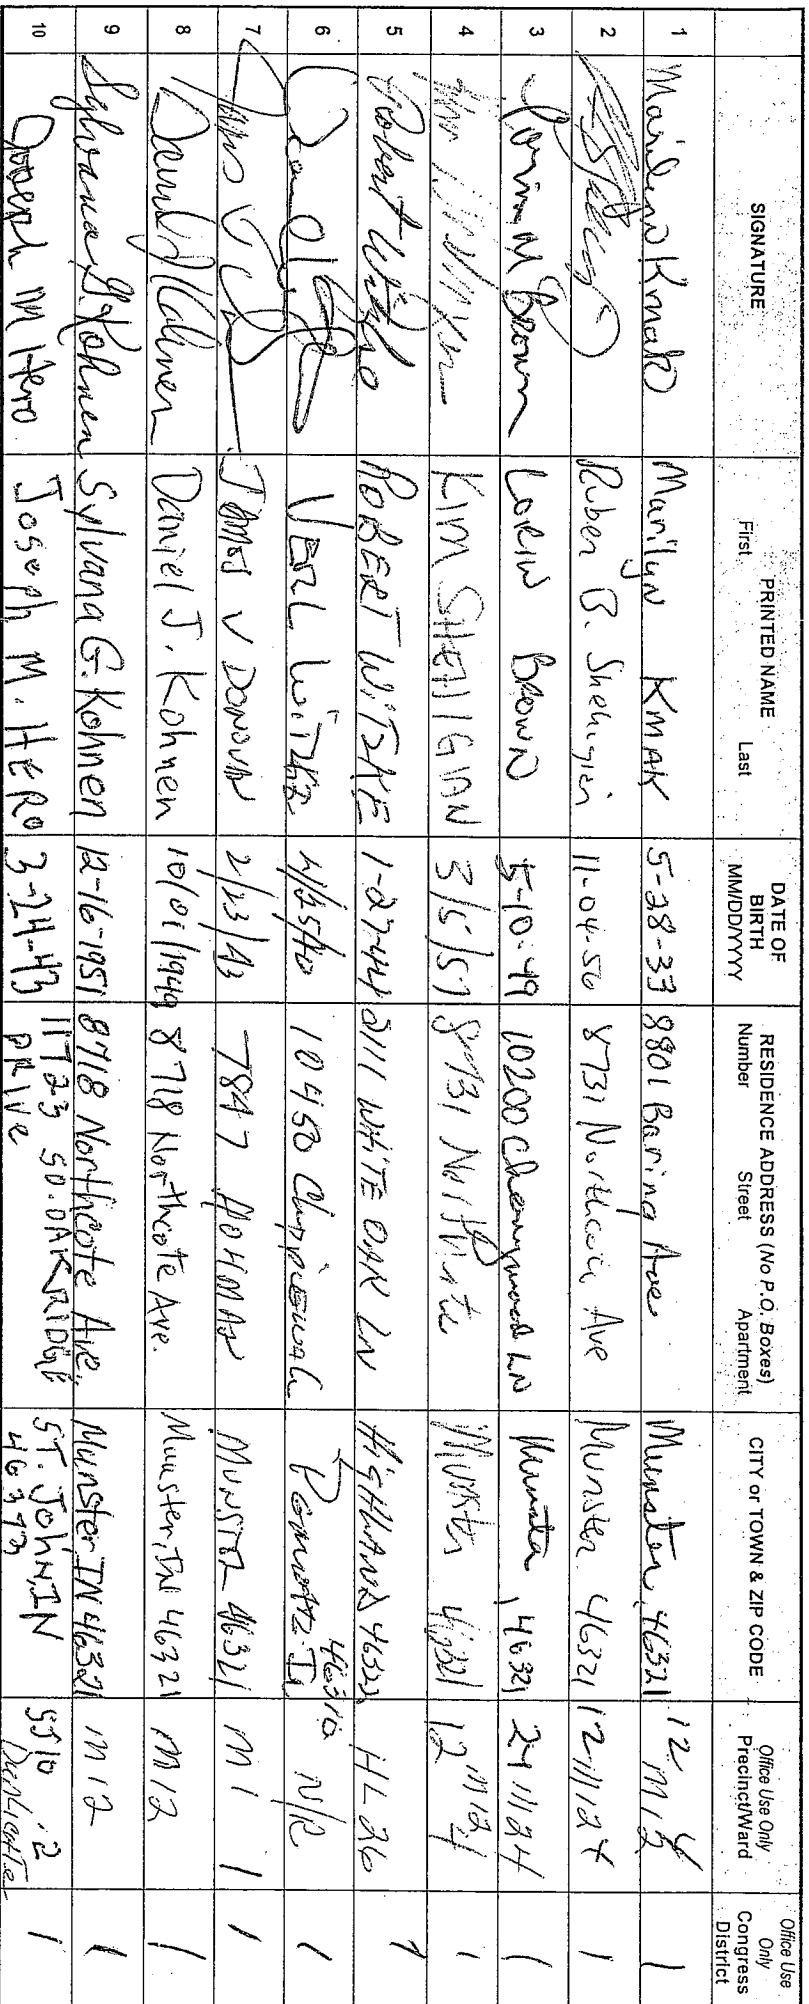 SIGNATURE
PRINTED NAME
First Last
DATE OF
BIRTH
MM/DD/YYYY
RESIDENCE ADDRESS (No P.O. Boxes)
Number Street Apartment
CITY or TOWN & ZIP CODE
Office Use Only
Precinct/Ward
Office Use
Only
Congress
District
1 Marilyn Kmak Marilyn KMAK 5-28-33 8801 Baring Ave Munster, 46321 12 M12 1
2 Ruben B. 11-04-56 8731 Ave Munster 46321 1
3 Lorin M Brown LORIN BROWN 5-10-49 10200 Cherrywood LN Munster, 46321 1
4 KIM SHEHIGIAN 3/5/57 8731 Northcote Munster 46321 1
5 Robert Witzke ROBERT WITZKE 1-27-44 2111 WHITE OAK LN HIGHLAND 46322 HL26 1
6 VERL 10450 46310 N/R 1
7 JAMES V DONOVAN 2/23/43 7847 MUNSTER 46321 M1 1
8 Daniel J Kohnen Daniel J. Kohnen 10/01/1949 8718 Northcote Ave. Munster, IN 46321 M12 1
9 Sylvana G. Kohnen Sylvana G. Kohnen 12-16-1951 8718 Northcote Ave, Munster, IN 46321 M12 1
10 Joseph M Hero Joseph M. HERO 3-24-43 11723 SO. OAKRIDGE
DRIVE
ST. JOHN, IN
46373
SJ10
Duplicate
1